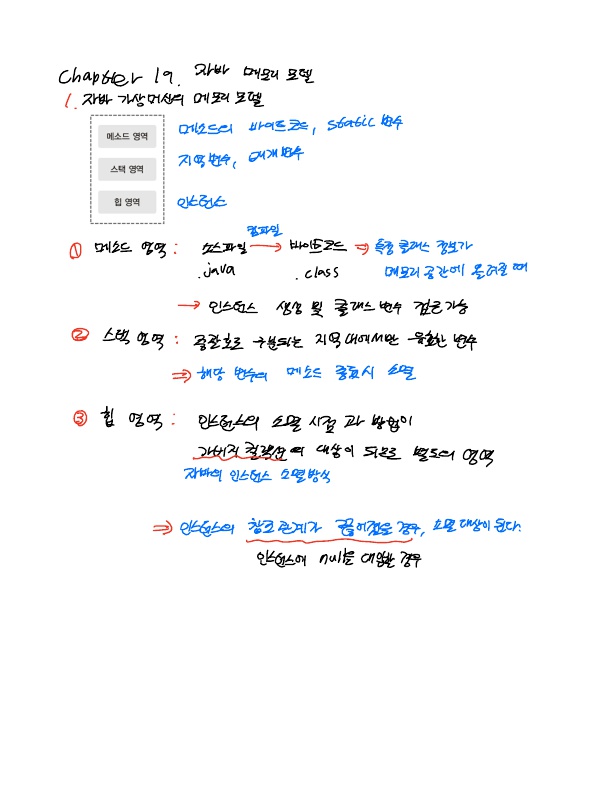 Chapter 19. 자바 메모리 모델
1. 자바 가상머신의 메모리 모델
메소드 영역
메소드의 바이트코드, static 변수
스택 영역
지역변수, 매개변수
힙 영역
인스턴스
① 메소드 영역 : 소스파일 컴파일 → 바이트코드 ⇒ 특정 클래스 정보가
.java .class 메모리 공간에 올려질 때
→ 인스턴스 생성 및 클래스 변수 접근 가능
② 스택 영역 : 중괄호로 구분되는 지역 내에서만 유효한 변수
⇒ 해당 변수의 메소드 종료시 소멸
③ 힙 영역 : 인스턴스의 소멸 시점과 방법이
가비지 컬렉션의 대상이 되므로 별도의 영역
자바의 인스턴스 소멸방식
⇒ 인스턴스의 참조관계가 끊어졌을 경우, 소멸 대상이 된다.
인스턴스에 null을 대입한 경우